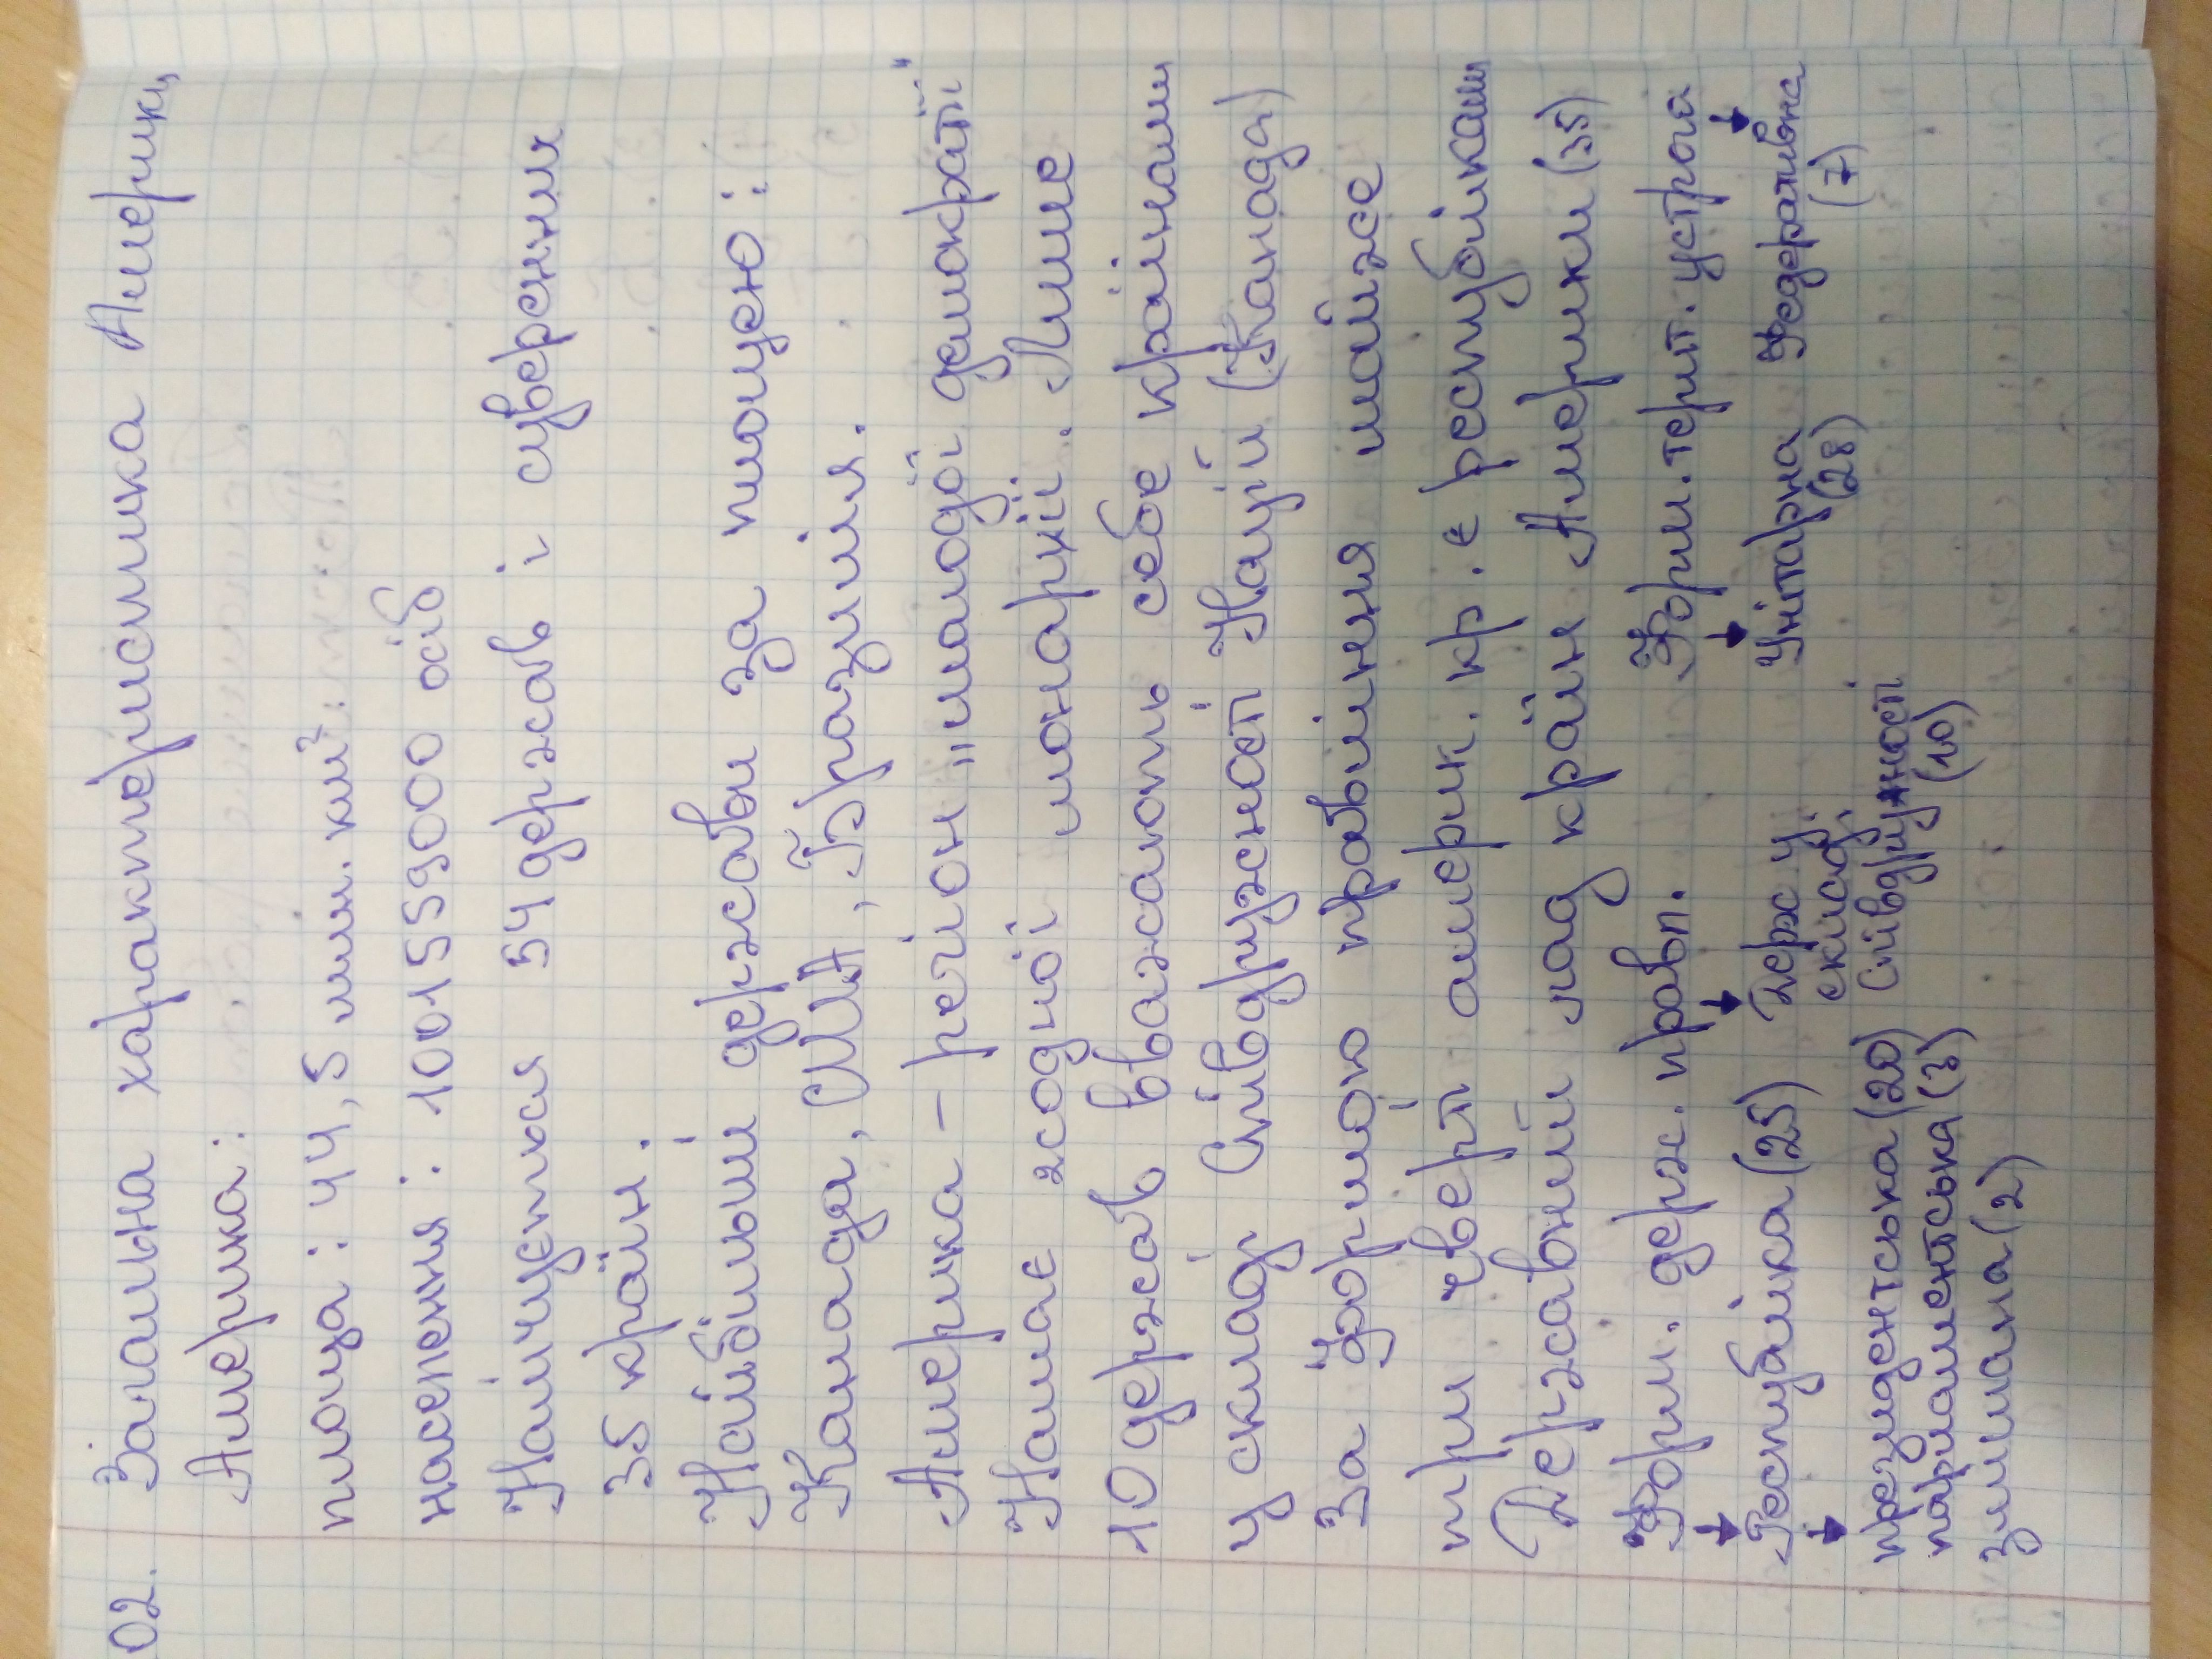 02. Загальна характеристика Америки
Америка:
площа: 44,5 млн. км²
населення: 1001559000 осіб
Налічується 54 держав і суверенних
35 країн.
Найбільші держави за площею:
Канада, США, Бразилія.
Америка – регіон „молодої демократії"
Немає жодної монархії. Лише
10 держав вважають себе країнами
у складі Співдружності Націй (Канада)
За формою правління майже
три чверті америк. кр. є республіками
Державний лад країн Америки (35)
Форм. держ. правл. Форм. терит. устрою
Республіка (25) Держ у. Унітарна Федеративна
склад. (28) (7)
Співдружності
(10)
президентська (20)
парламентська (3)
змішана (2)